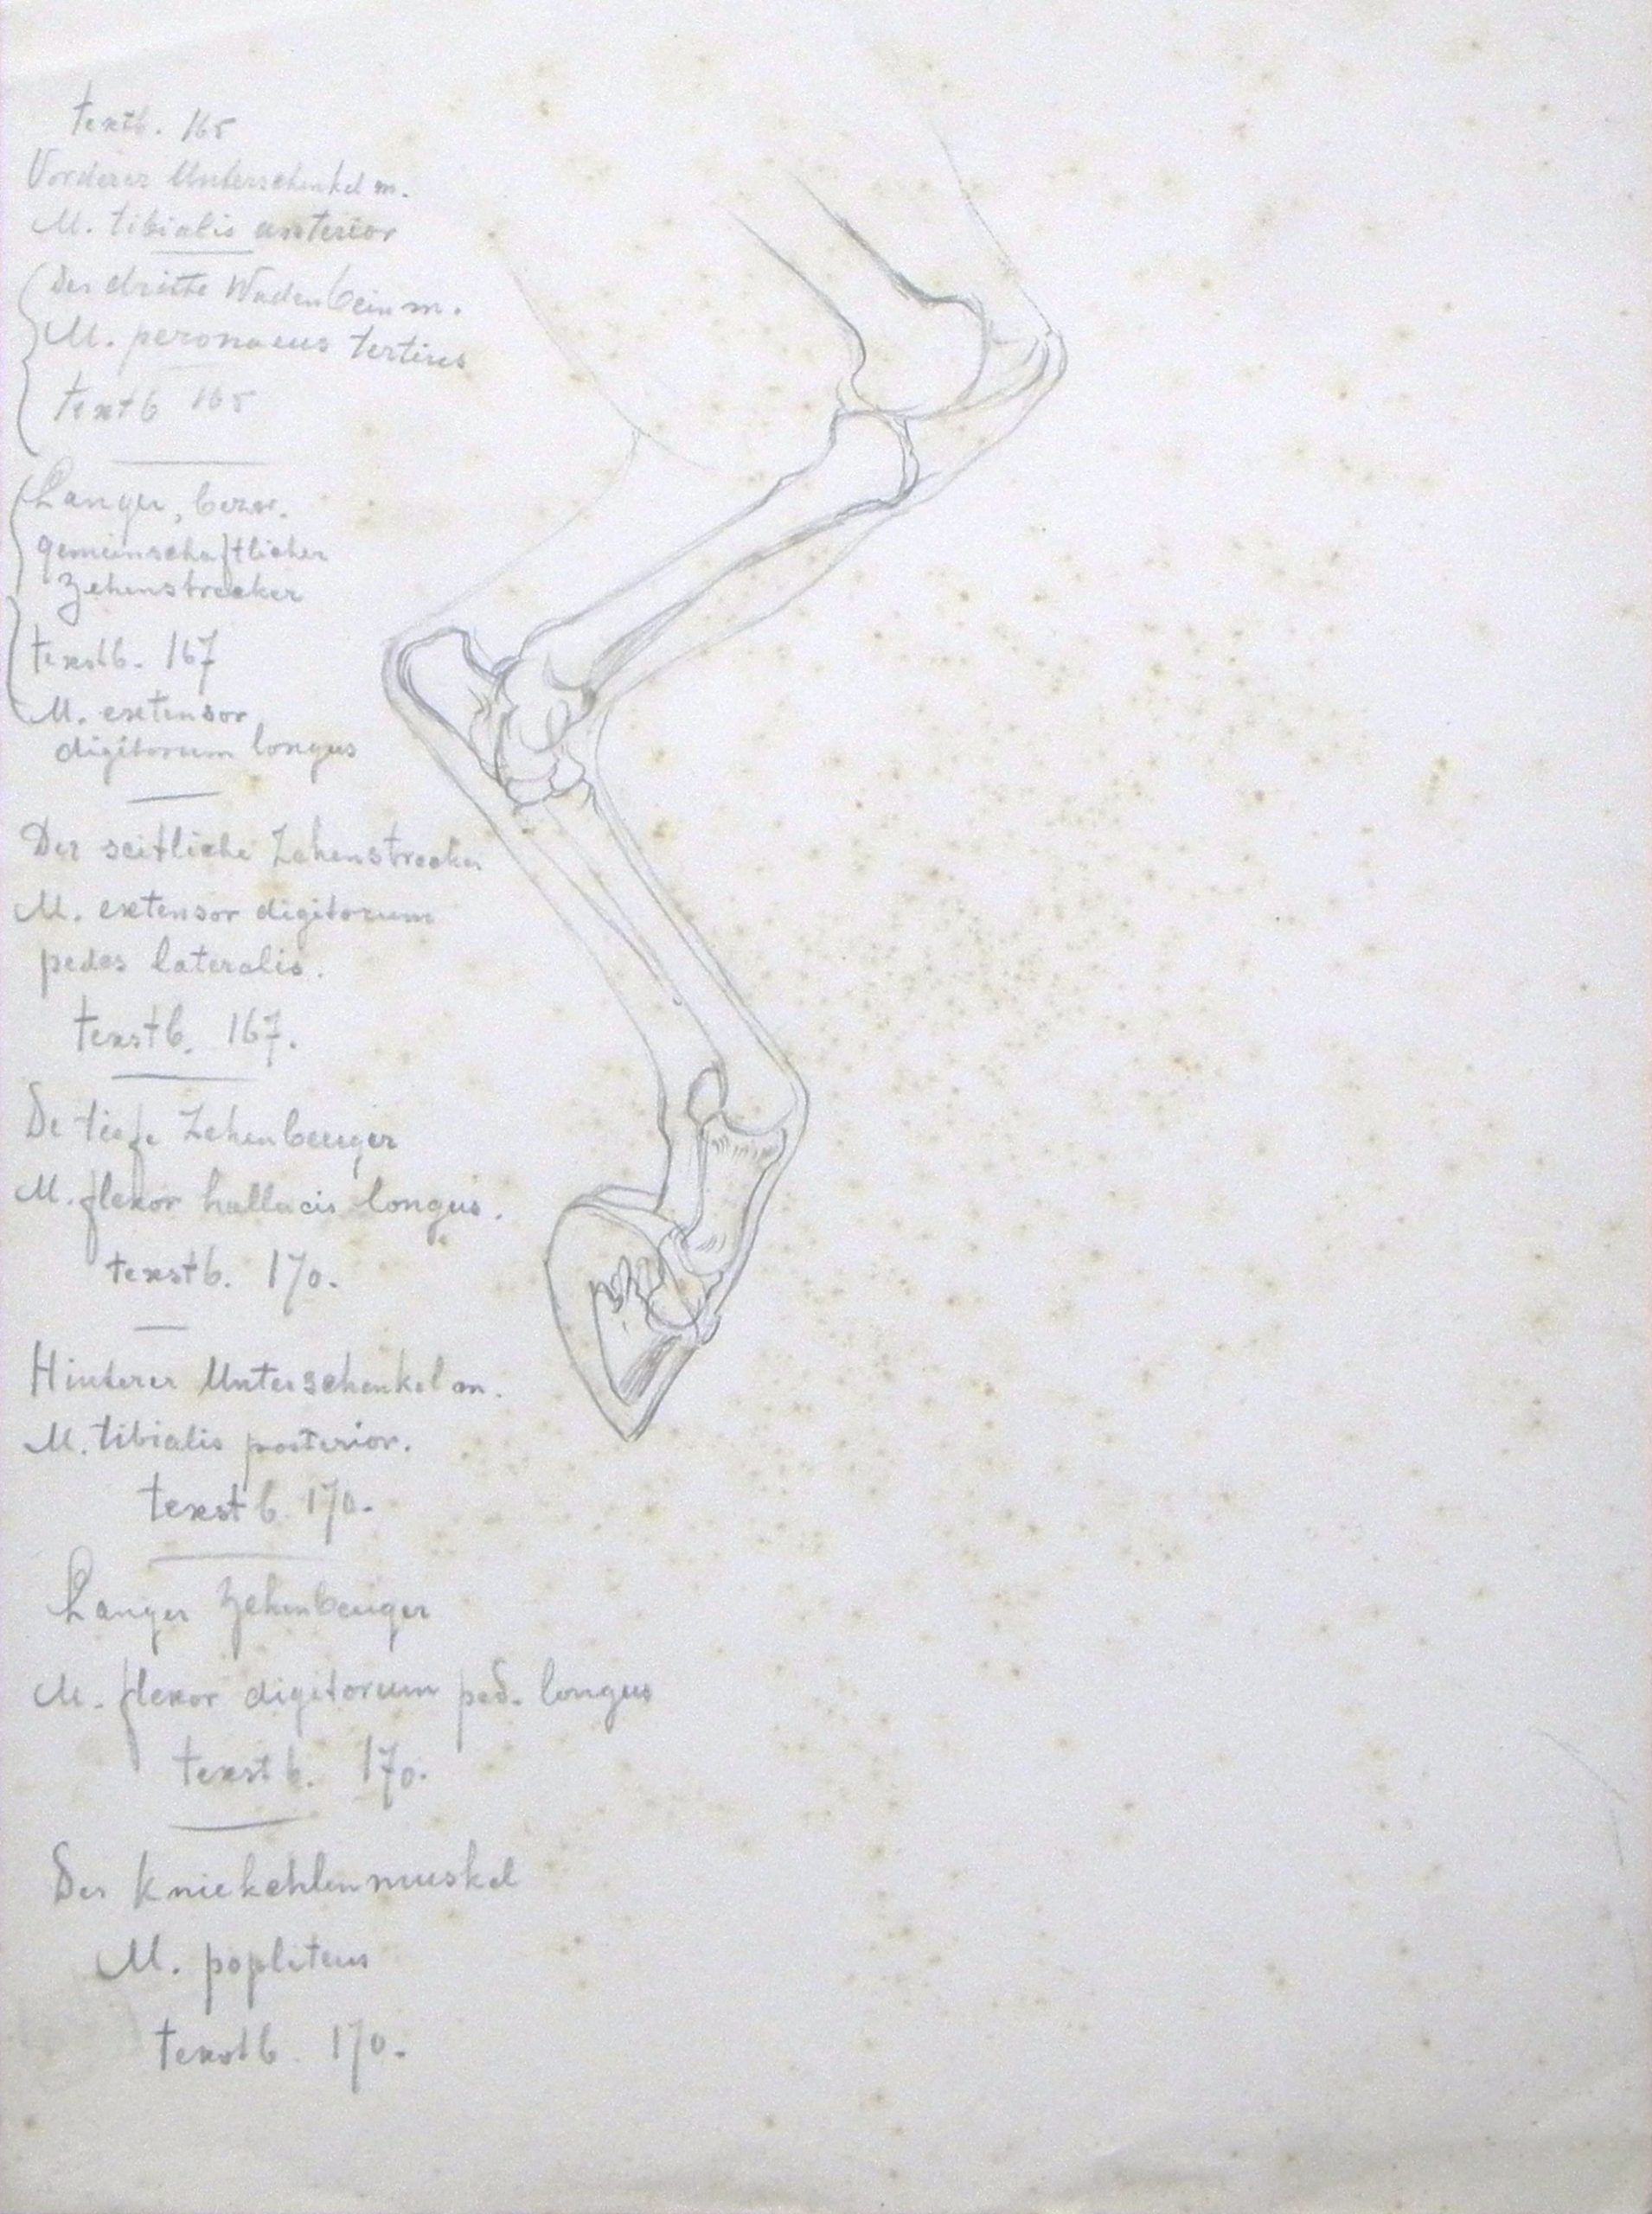 textb. 165
Vorderer Unterschenkel m.
M. tibialis anterior
Der dritte Wadenbein m.
M. peronaeus tertius
textb 165
Langer, bezw.
gemeinschaftlicher
Zehenstrecker
textb. 167
M. extensor
digitorum longus
Der seitliche Zehenstrecker
M. extensor digitorum
pedes lateralis.
textb. 167.
De tiefe Zehenbeuger
M. flexor hallucis longus.
textb. 170.
Hinterer Unterschenkel m.
M. tibialis posterior.
textb. 170.
Langer Zehenbeuger
M. flexor digitorum ped. longus
textb. 170.
Der Kniekehlenmuskel
M. popliteus
textb. 170.